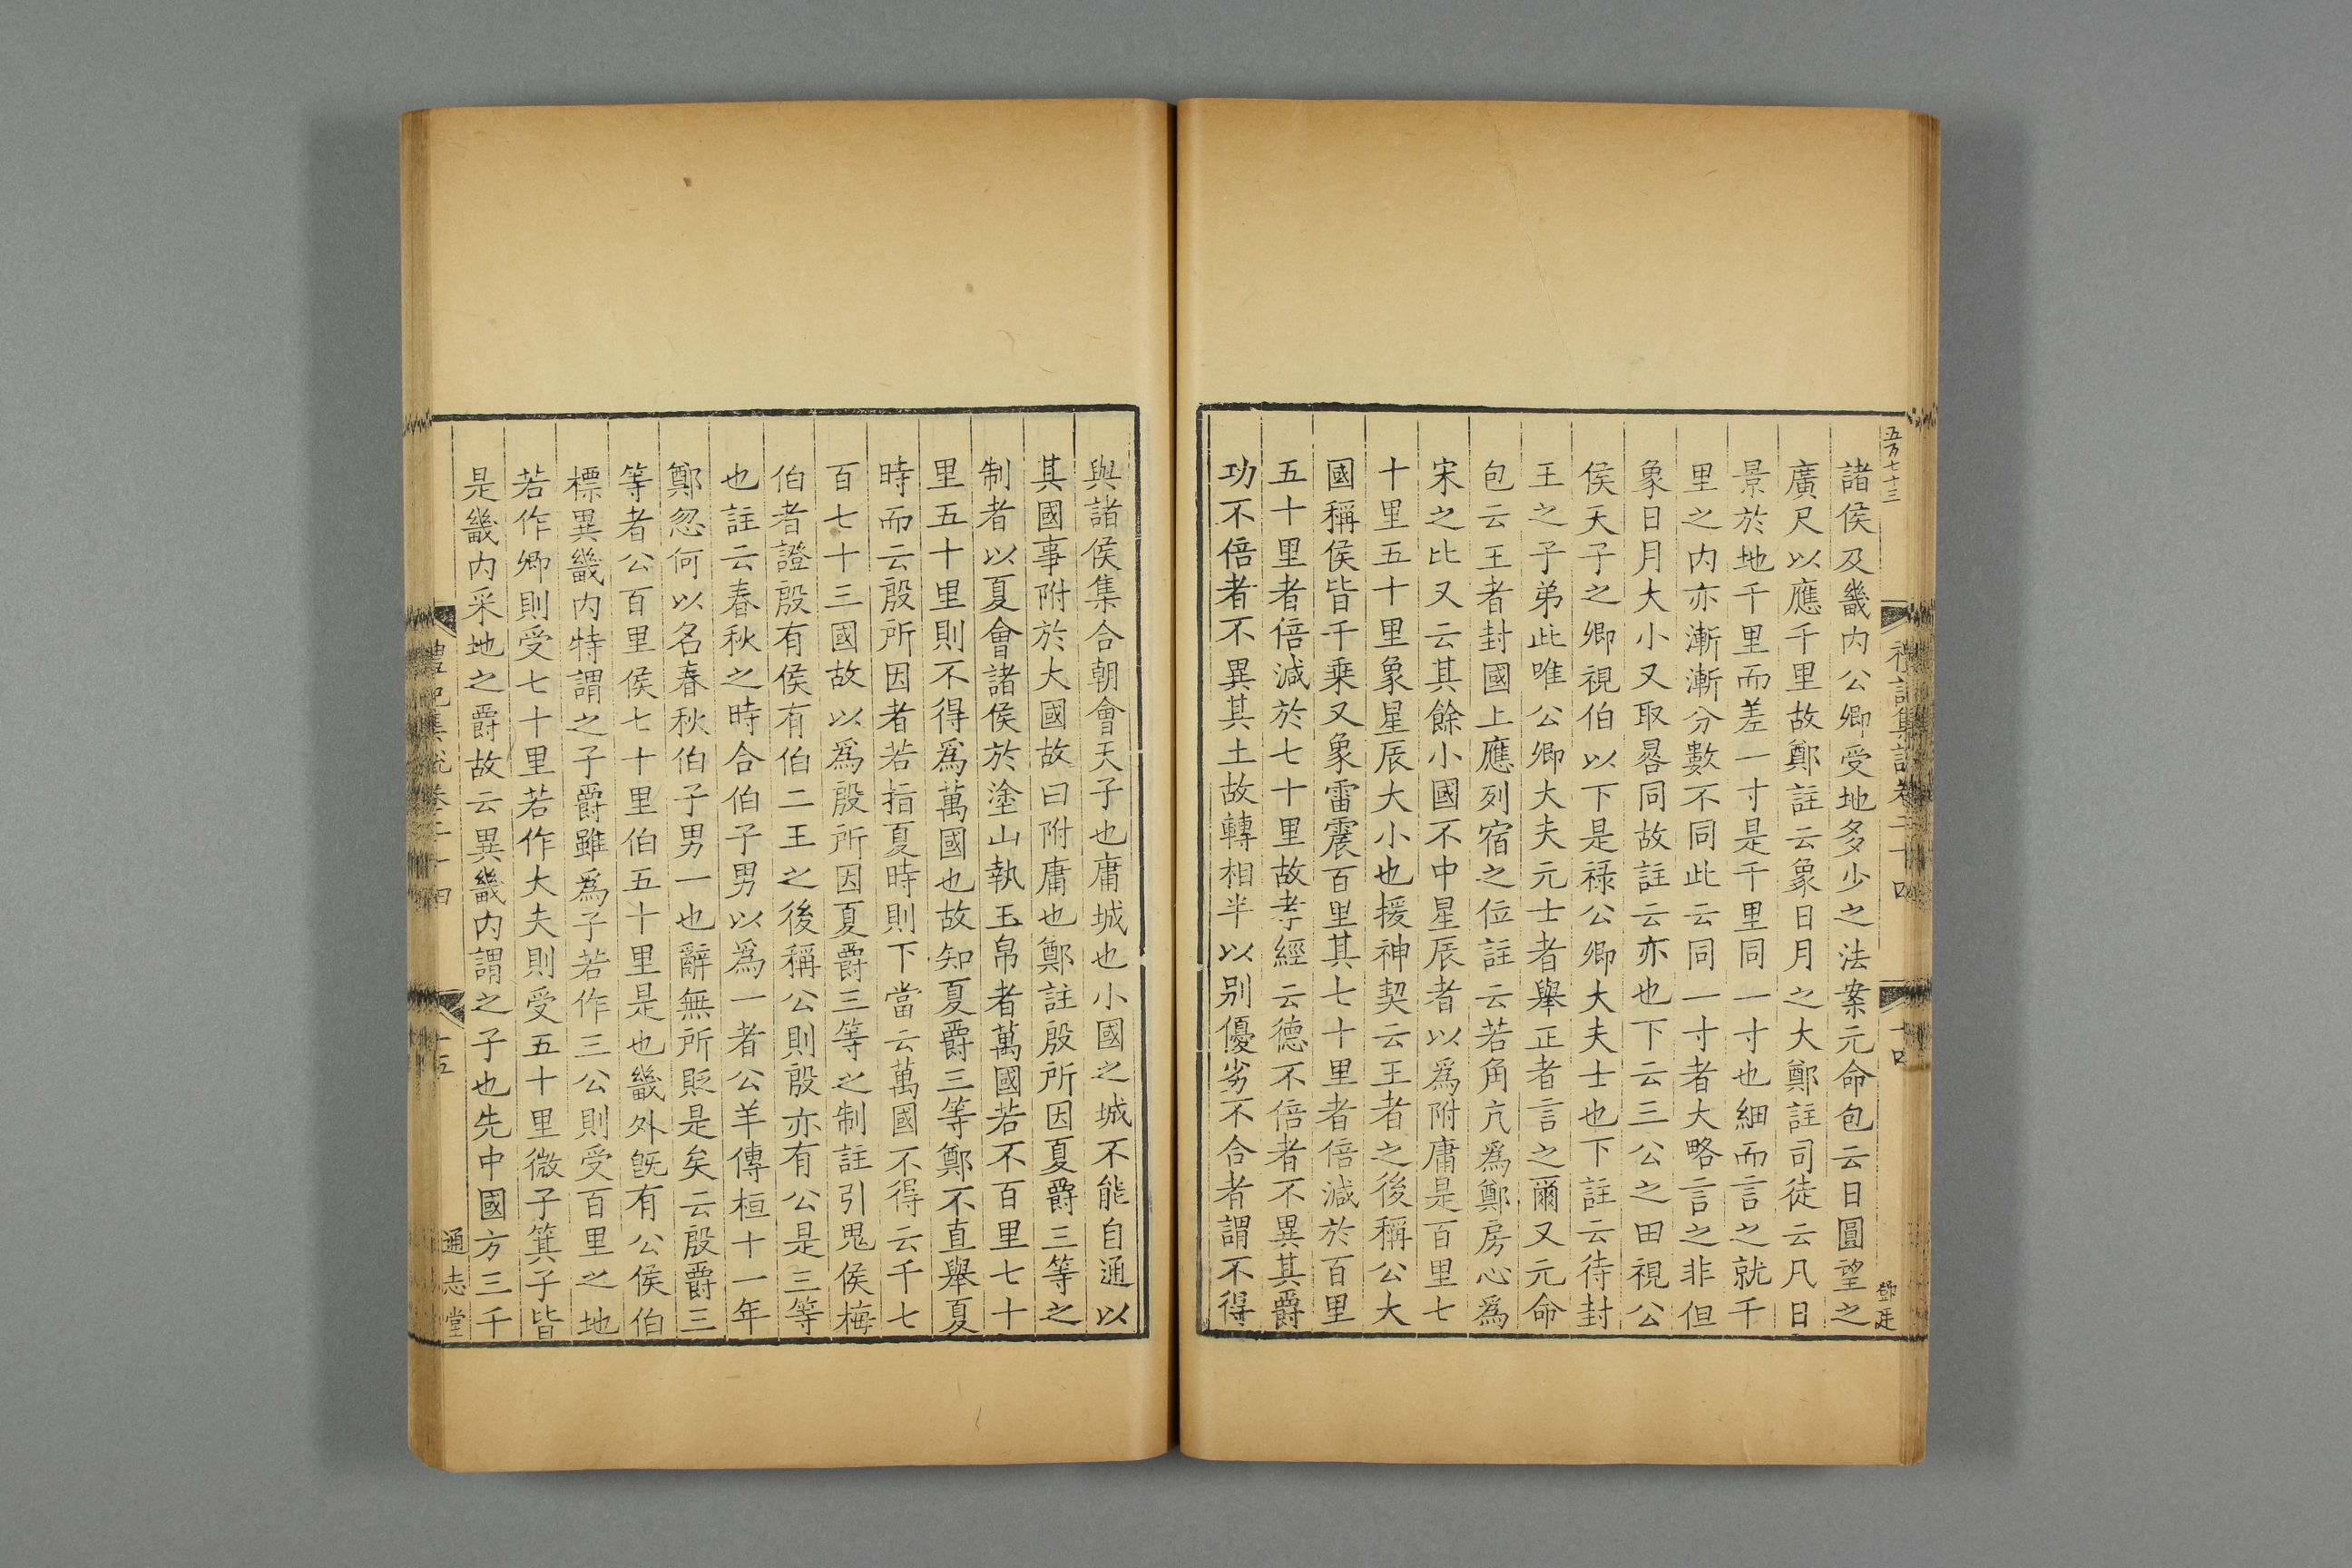 五万七十三
諸侯及畿内公卿受地多少之法案元命包云日圓望之
廣尺以應千里故鄭註云象日月之大鄭註司徒云凡日
景於地千里而差一寸是千里同一寸也細而言之就千
里之内亦漸漸分數不同此云同一寸者大略言之非但
象日月大小又取晷同故註云亦也下云三公之田視公
侯天子之卿視伯以下是祿公卿大夫士也下註云待封
王之子弟此唯公卿大夫元士者舉正者言之爾又元命
包云王者封國上應列宿之位註云若角亢爲鄭房心爲
宋之比又云其餘小國不中星辰者以爲附庸是百里七
十里五十里象星辰大小也援神契云王者之後稱公大
國稱侯皆千乗又象雷震百里其七十里者倍減於百里
五十里者倍減於七十里故孝經云德不倍者不異其爵
功不倍者不異其土故轉相半以别優劣不合者謂不得
禮記集說卷二十四
十四
與諸侯集合朝會天子也庸城也小國之城不能自通以
其國事附於大國故曰附庸也鄭註殷所因夏爵三等之
制者以夏會諸侯於塗山執玉帛者萬國若不百里七十
里五十里則不得爲萬國也故知夏爵三等鄭不直舉夏
時而云殷所因者若指夏時則下當云萬國不得云千七
百七十三國故以爲殷所因夏爵三等之制註引鬼侯梅
伯者證殷有侯有伯二王之後稱公則殷亦有公是三等
也註云春秋之時合伯子男以爲一者公羊傳桓十一年
鄭忽何以名春秋伯子男一也辭無所貶是矣云殷爵三
等者公百里侯七十里伯五十里是也畿外旣有公侯伯
標異畿内特謂之子爵雖爲子若作三公則受百里之地
若作卿則受七十里若作大夫則受五十里微子箕子皆
是畿内采地之爵故云異畿内謂之子也先中國方三千
禮記集說卷二十四
十五
通志堂